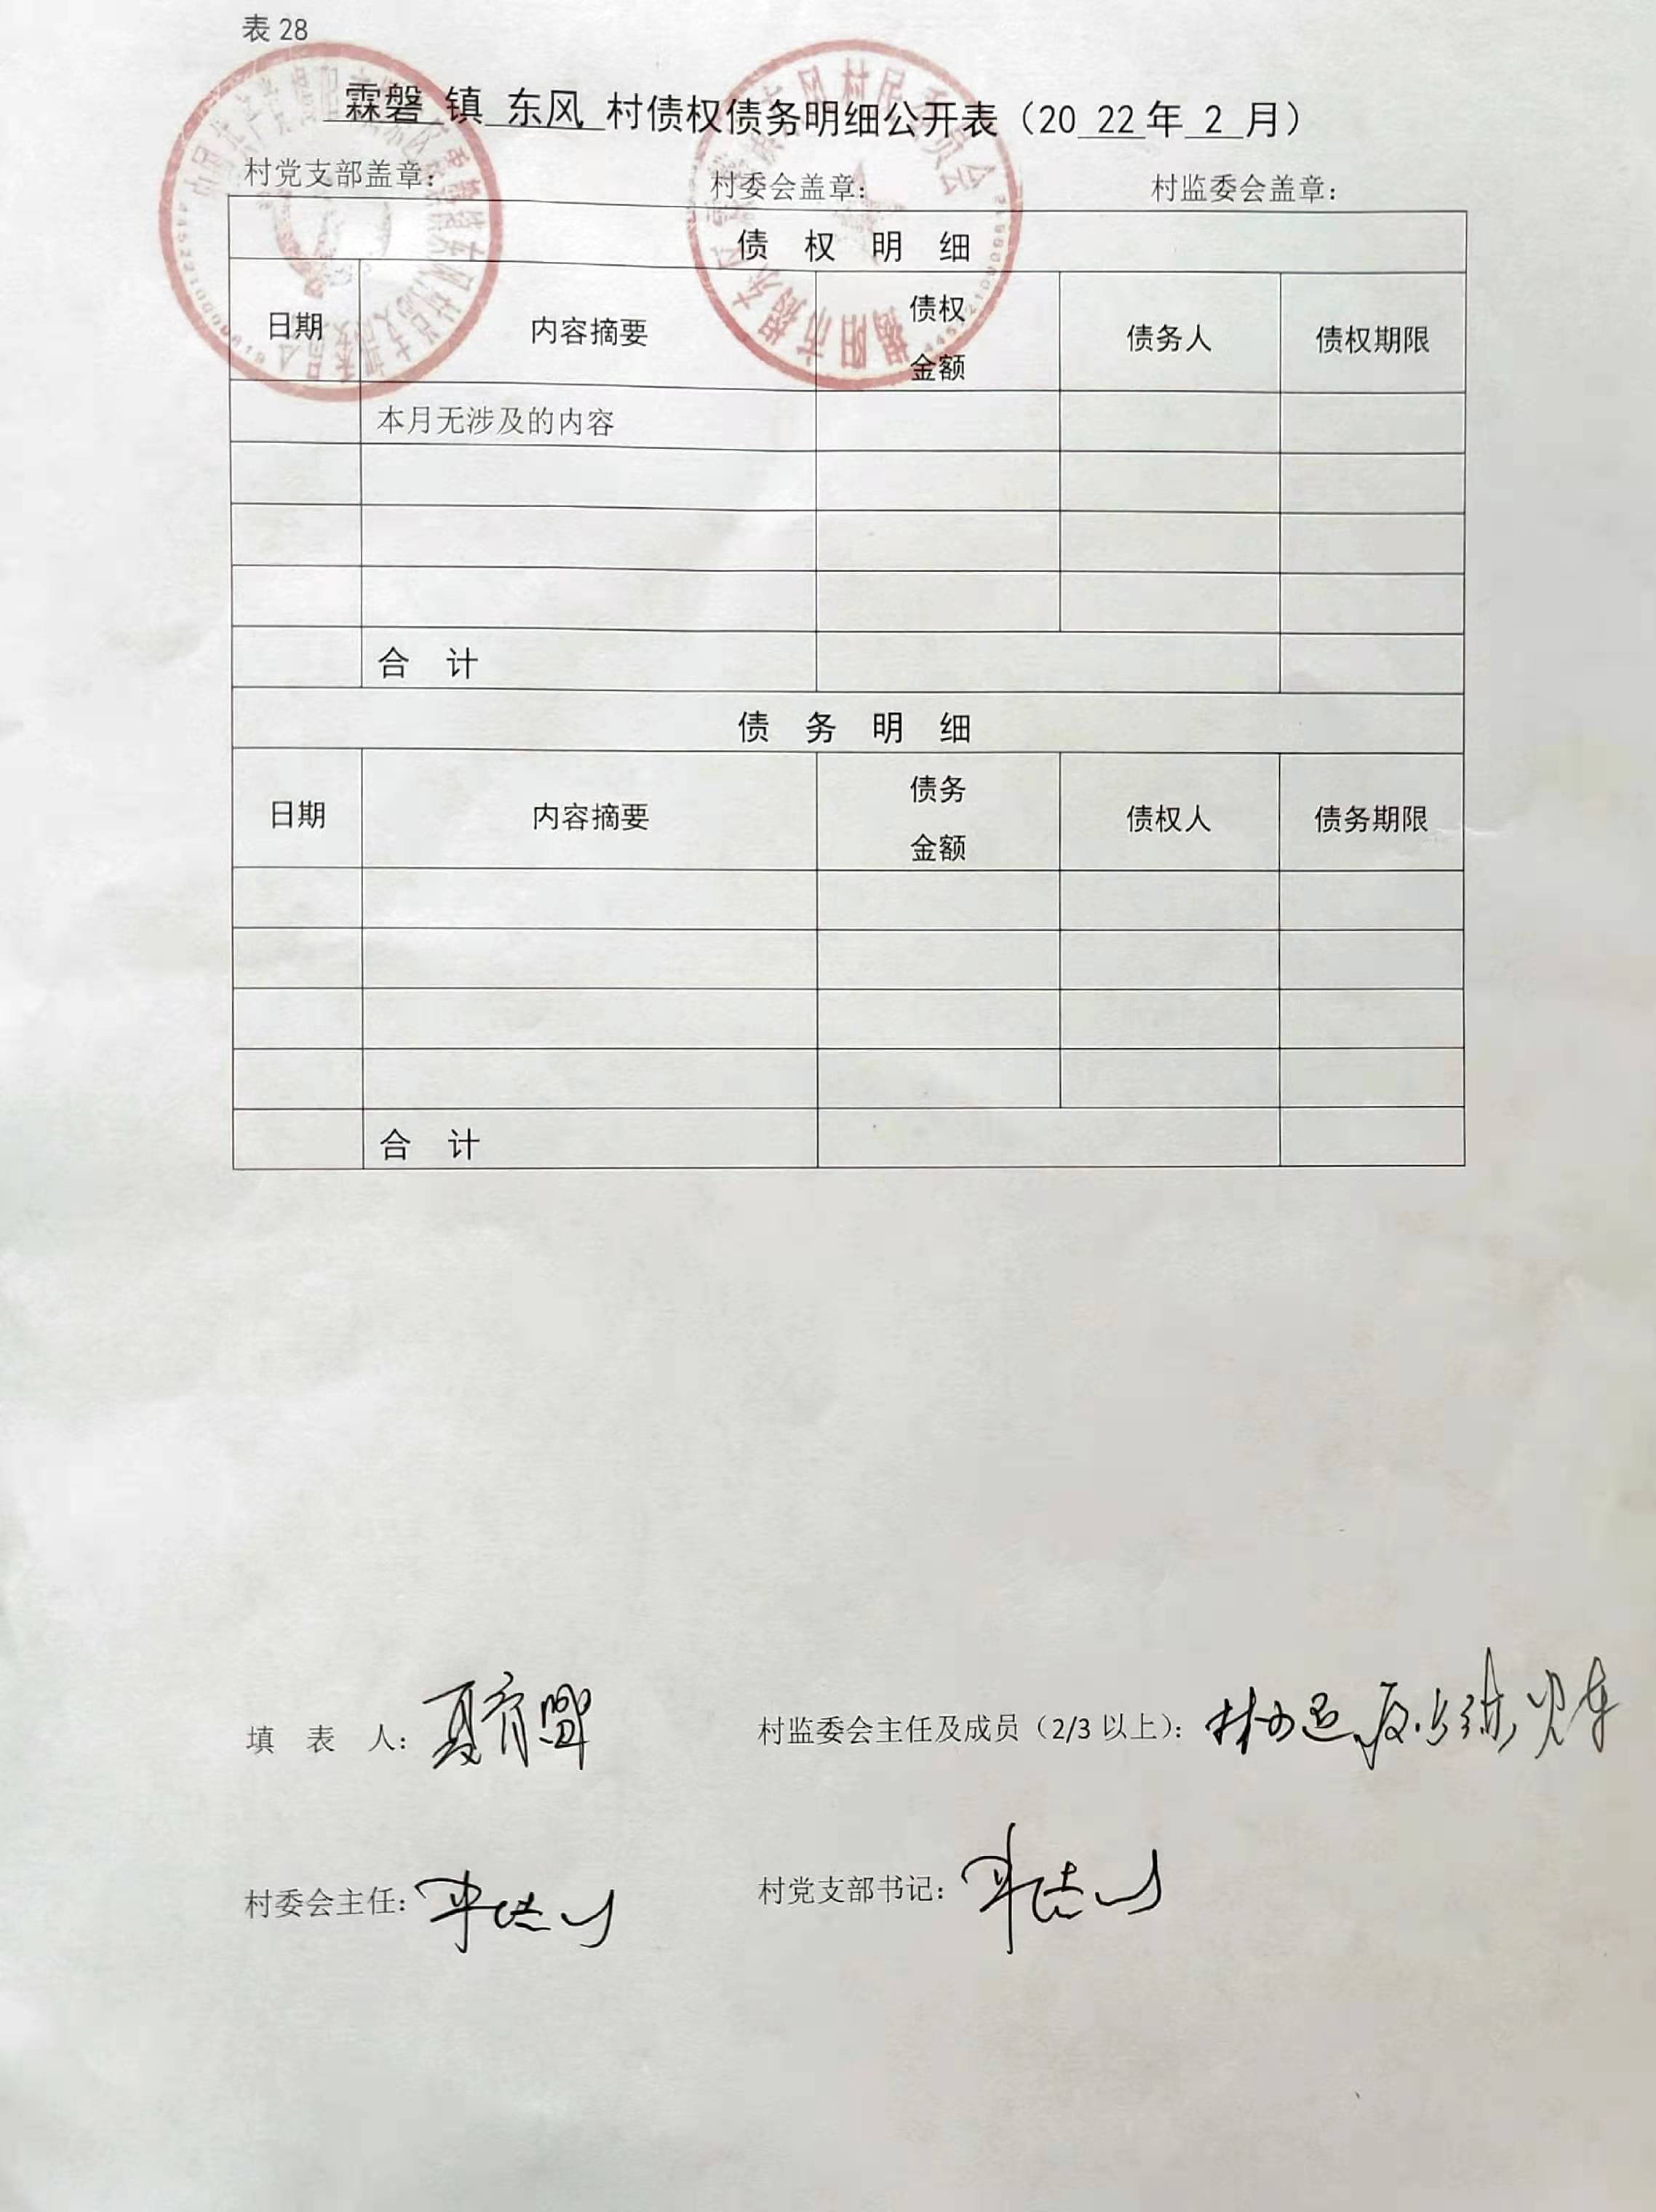 表 28
霖磐 镇 东风 村债权债务明细公开表（20 22 年 2 月）
村党支部盖章： 村委会盖章： 村监委会盖章：
债 权 明 细
日期 内容摘要 债权金额 债务人 债权期限
本月无涉及的内容
合 计
债 务 明 细
日期 内容摘要 债务金额 债权人 债务期限
合 计
填 表 人： 村监委会主任及成员（2/3 以上）：
村委会主任： 村党支部书记：